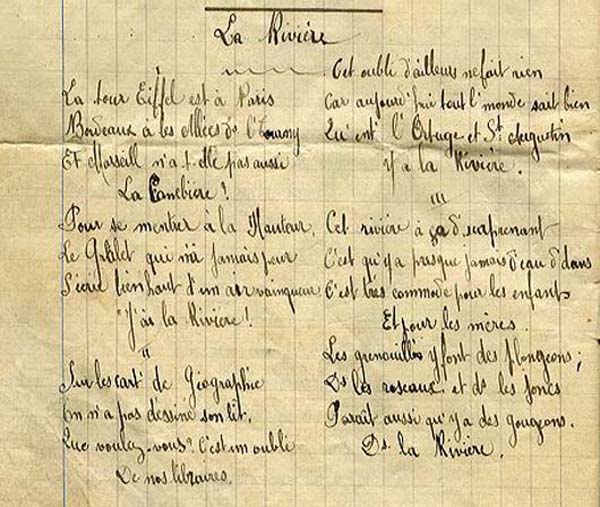 La Rivière
La tour Eiffel est à Paris
Bordeaux à les Allées Ds l'Tourny
Et Marseill n'a t-elle pas aussi
La Canebière !
Pour se mentier à la Hauteur,
Le qui n'a jamais peur
S'écrie bien haut d'un air vainqueur
"J'ai la Rivière !
"
Sur les cart' de Géographie
On n'a pas dessine son lit.
Que voulez-vous? C'est un oubli
De nos libraires.
Cet oubli d'ailleurs ne fait rien
Car aujourd'hui tout l'monde sait bien
Qu'ent' l'Ortuge et St Augustin
Y a la Rivière.
"'
Cet rivière à ça d'surprenant
C'est qu'y a presque jamais d'eau d'dans
C'est très commode pour les enfants
Et pour les mères.
Les grenouill's y font des plongeons ;
Ds les roseaux et ds les joncs
Paraît aussi qu'y a des gougeons.
Ds la Rivière.